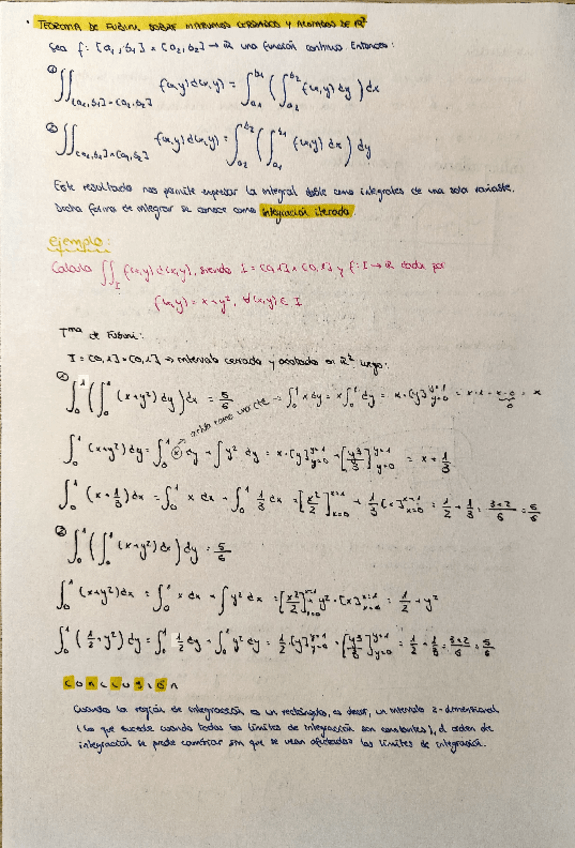 · TEOREMA DE FUBINI SOBRE INTERVALOS CERRADOS Y ACOTADOS DE ℝ²
Sea f: [a₁,b₁] × [a₂,b₂] → ℝ una función continua. Entonces:
① ∬_[a₁,b₁]×[a₂,b₂] f(x,y)d(x,y) = ∫_a₁^b₁ (∫_a₂^b₂ f(x,y) dy) dx
② ∬_[a₁,b₁]×[a₂,b₂] f(x,y)d(x,y) = ∫_a₂^b₂ (∫_a₁^b₁ f(x,y) dx) dy
Este resultado nos permite expresar la integral doble como integrales de una sola variable.
Dicha forma de integrar se conoce como integración iterada.
Ejemplo:
Calcula ∬_I f(x,y) d(x,y), siendo I = [0,1] × [0,1] y f: I → ℝ dada por
f(x,y) = x + y², ∀(x,y) ∈ I
Tᵐᵃ de Fubini:
I = [0,1] × [0,1] → intervalo cerrado y acotado en ℝ² luego:
① ∫₀¹ (∫₀¹ (x+y²) dy) dx = 5/6
actúa como una cte → ∫₀¹ x dy = x ∫₀¹ dy = x · [y]_{y=0}^{y=1} = x·1 - x·0 = x
0
∫₀¹ (x+y²) dy = ∫₀¹ x dy + ∫ y² dy = x · [y]_{y=0}^{y=1} + [y³/3]_{y=0}^{y=1} = x + 1/3
∫₀¹ (x + 1/3) dx = ∫₀¹ x dx + ∫₀¹ 1/3 dx = [x²/2]_{x=0}^{x=1} + 1/3 [x]_{x=0}^{x=1} = 1/2 + 1/3 = 3+2/6 = 5/6
② ∫₀¹ (∫₀¹ (x+y²) dx) dy = 5/6
∫₀¹ (x+y²) dx = ∫₀¹ x dx + ∫ y² dx = [x²/2]_{x=0}^{x=1} + y² · [x]_{x=0}^{x=1} = 1/2 + y²
∫₀¹ (1/2 + y²) dy = ∫₀¹ 1/2 dy + ∫₀¹ y² dy = 1/2 [y]_{y=0}^{y=1} + [y³/3]_{y=0}^{y=1} = 1/2 + 1/3 = 3+2/6 = 5/6
CONCLUSIÓN
Cuando la región de integración es un rectángulo, es decir, un intervalo 2-dimensional
(lo que sucede cuando todos los límites de integración son constantes), el orden de
integración se puede cambiar sin que se vean afectados los límites de integración.